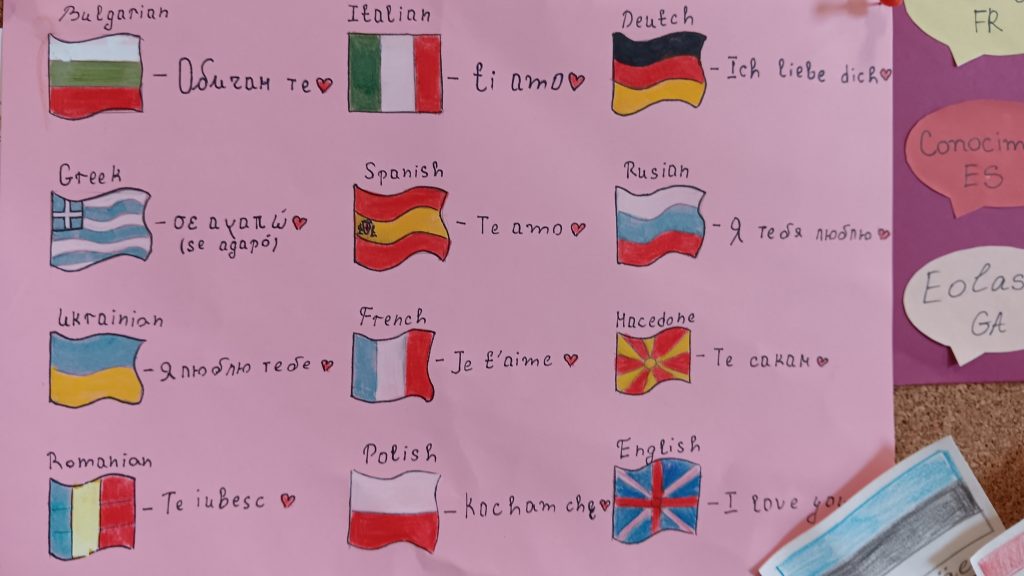 Bulgarian
– Обичам те
Italian
– ti amo
Deutch
– Ich liebe dich
Greek
– σε αγαπώ
(se agapó)
Spanish
– Te amo
Rusian
– Я тебя люблю
Ukrainian
– Я люблю тебе
French
– Je t'aime
Macedone
– Те сакам
Romanian
– Te iubesc
Polish
– Kocham chę
English
– I love you
FR
Conocim
ES
Eolas
GA